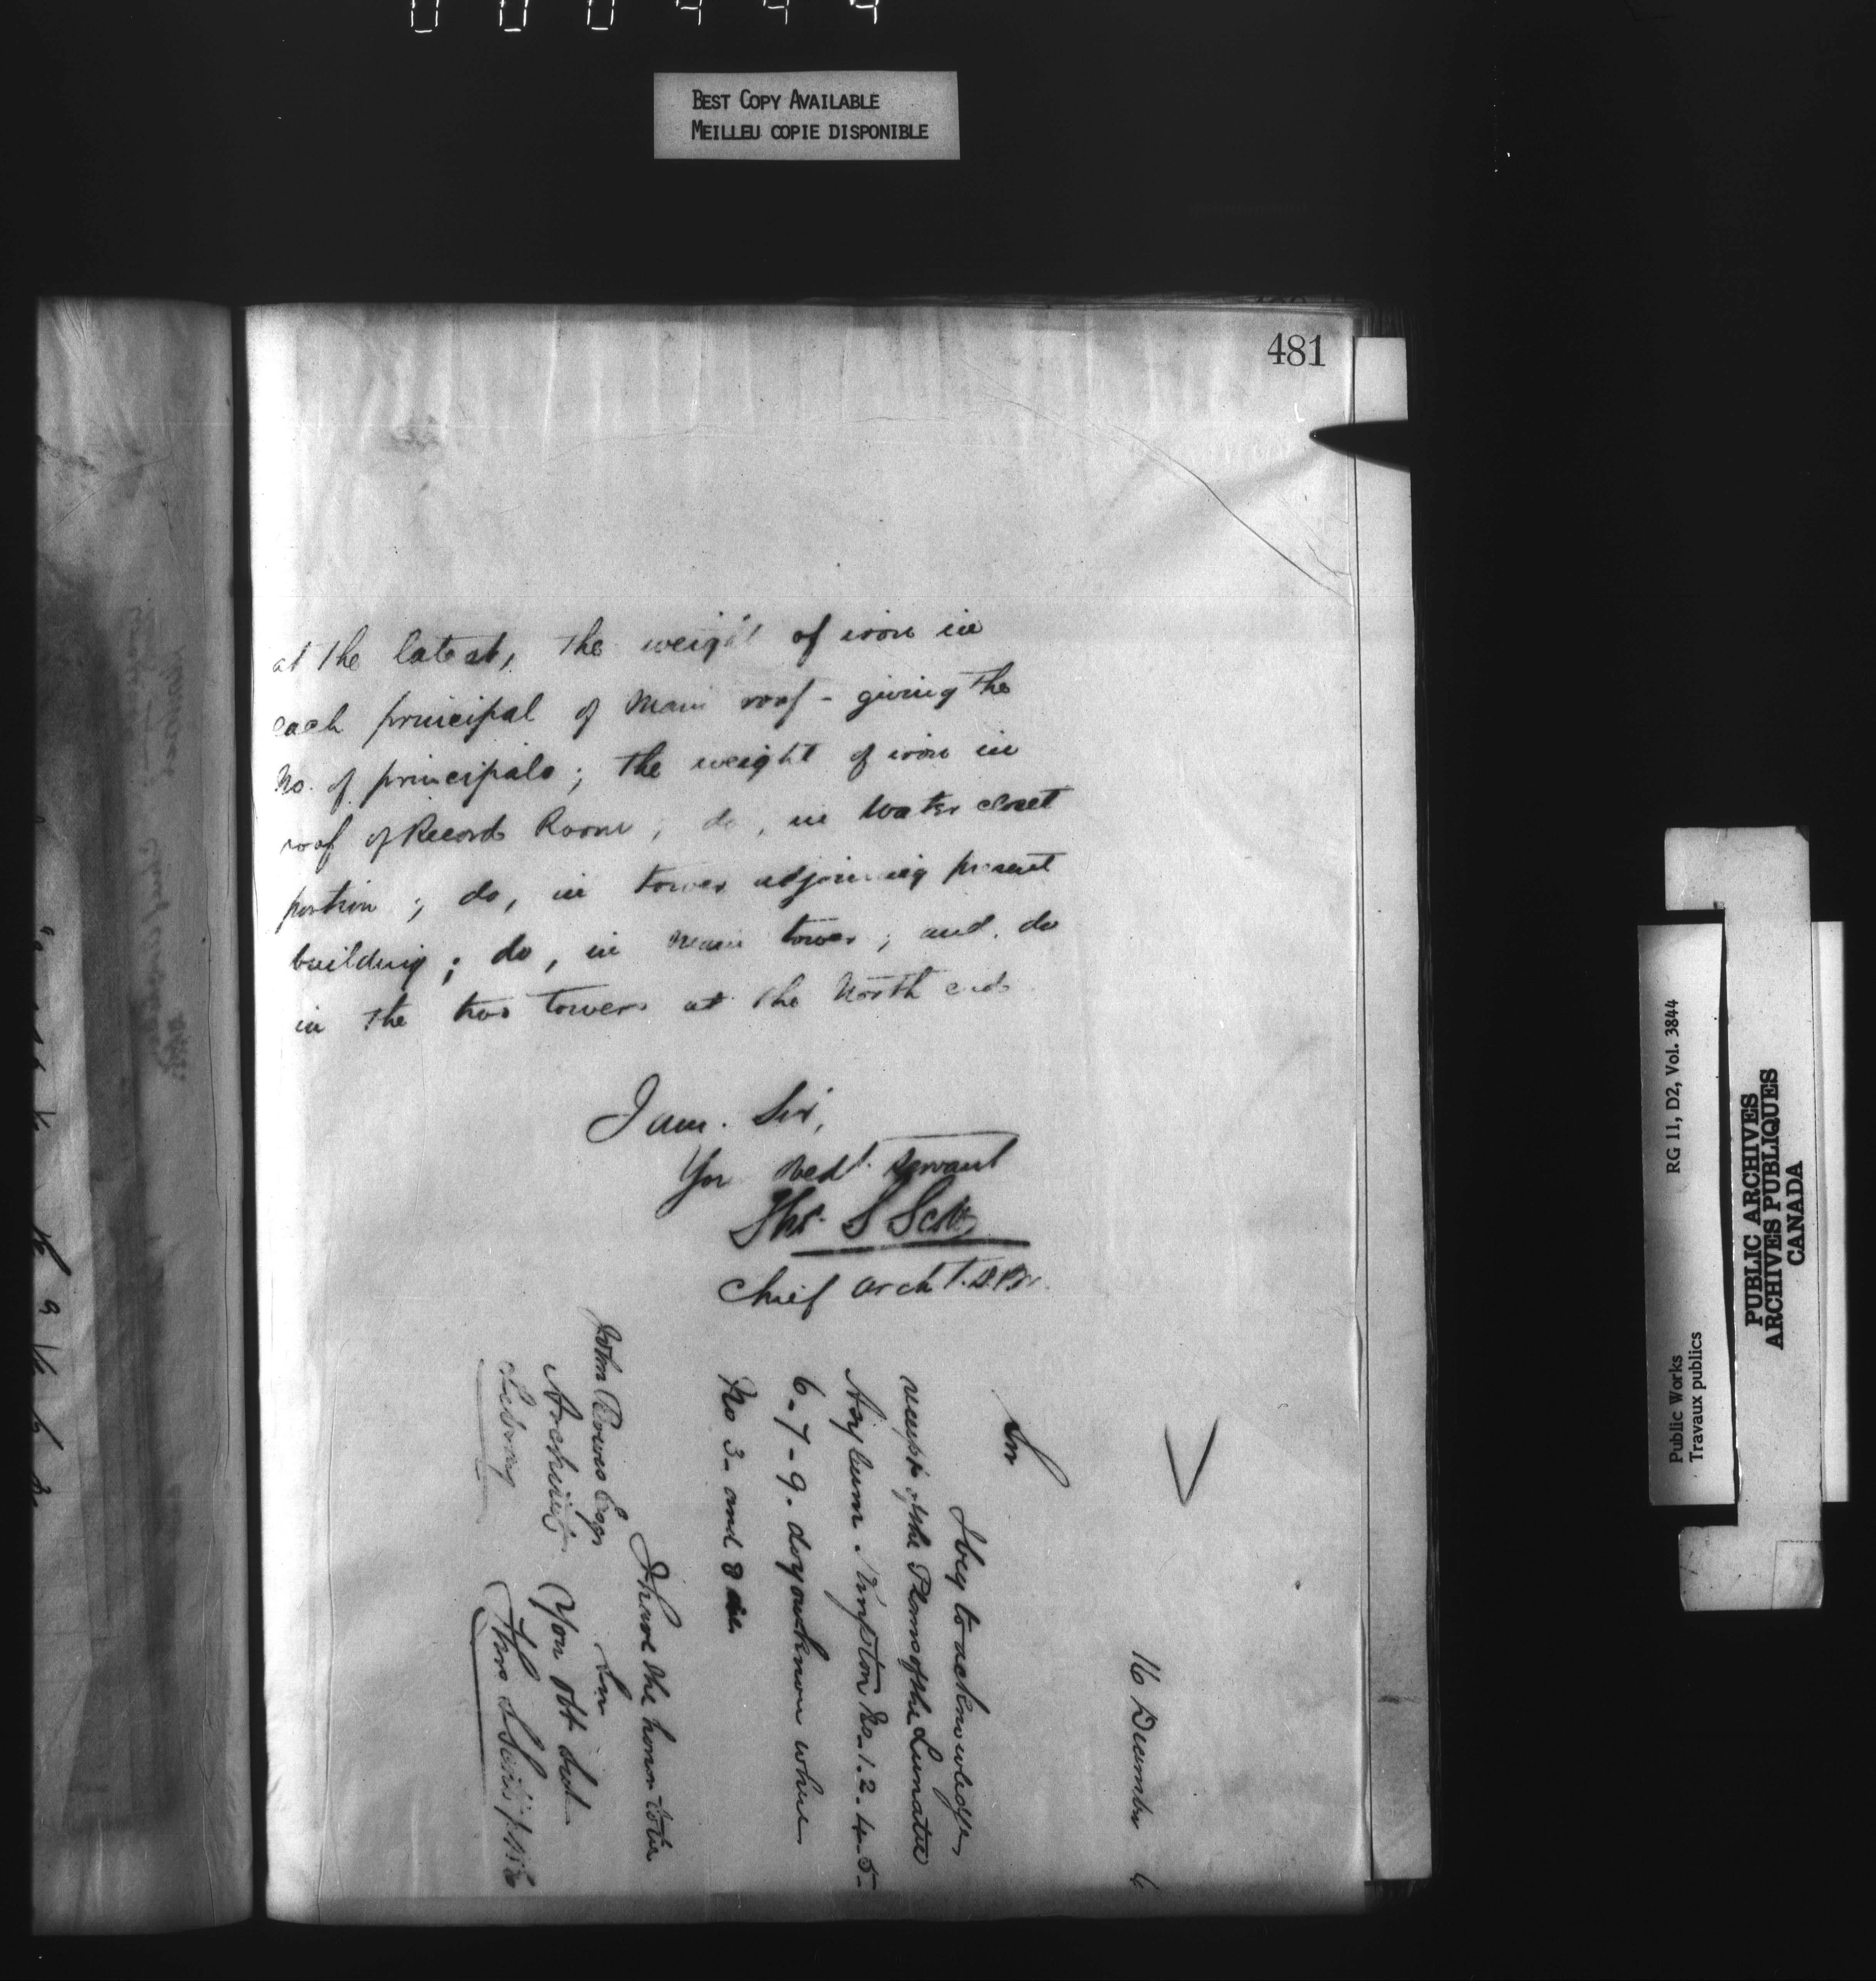 BEST COPY AVAILABLE
MEILLEU COPIE DISPONIBLE
481
at the latest, the weight of iron in
each principal of Main roof - giving the
No. of principals; the weight of iron in
roof of Record Room; do, in Water closet
portion; do, in tower adjoining present
building; do, in main tower; and do
in the two towers at the North end
I am. Sir,
Yr obedt. Servant
Thos. S Scott
Chief Archt. D.P.W.
16 December 6
Sir
I beg to acknowledge
receipt of the Plans of the Lunatic
Asylum Kingston No. 1. 2. 4. 5-
6. 7 - 9. do you know where
No 3 - and 8 are
I have the honor to be
Sir
John Bowes Esqr
Architect
You obt Sert
RG 11, D2, Vol. 3844
Public Works
Travaux publics
PUBLIC ARCHIVES
ARCHIVES PUBLIQUES
CANADA